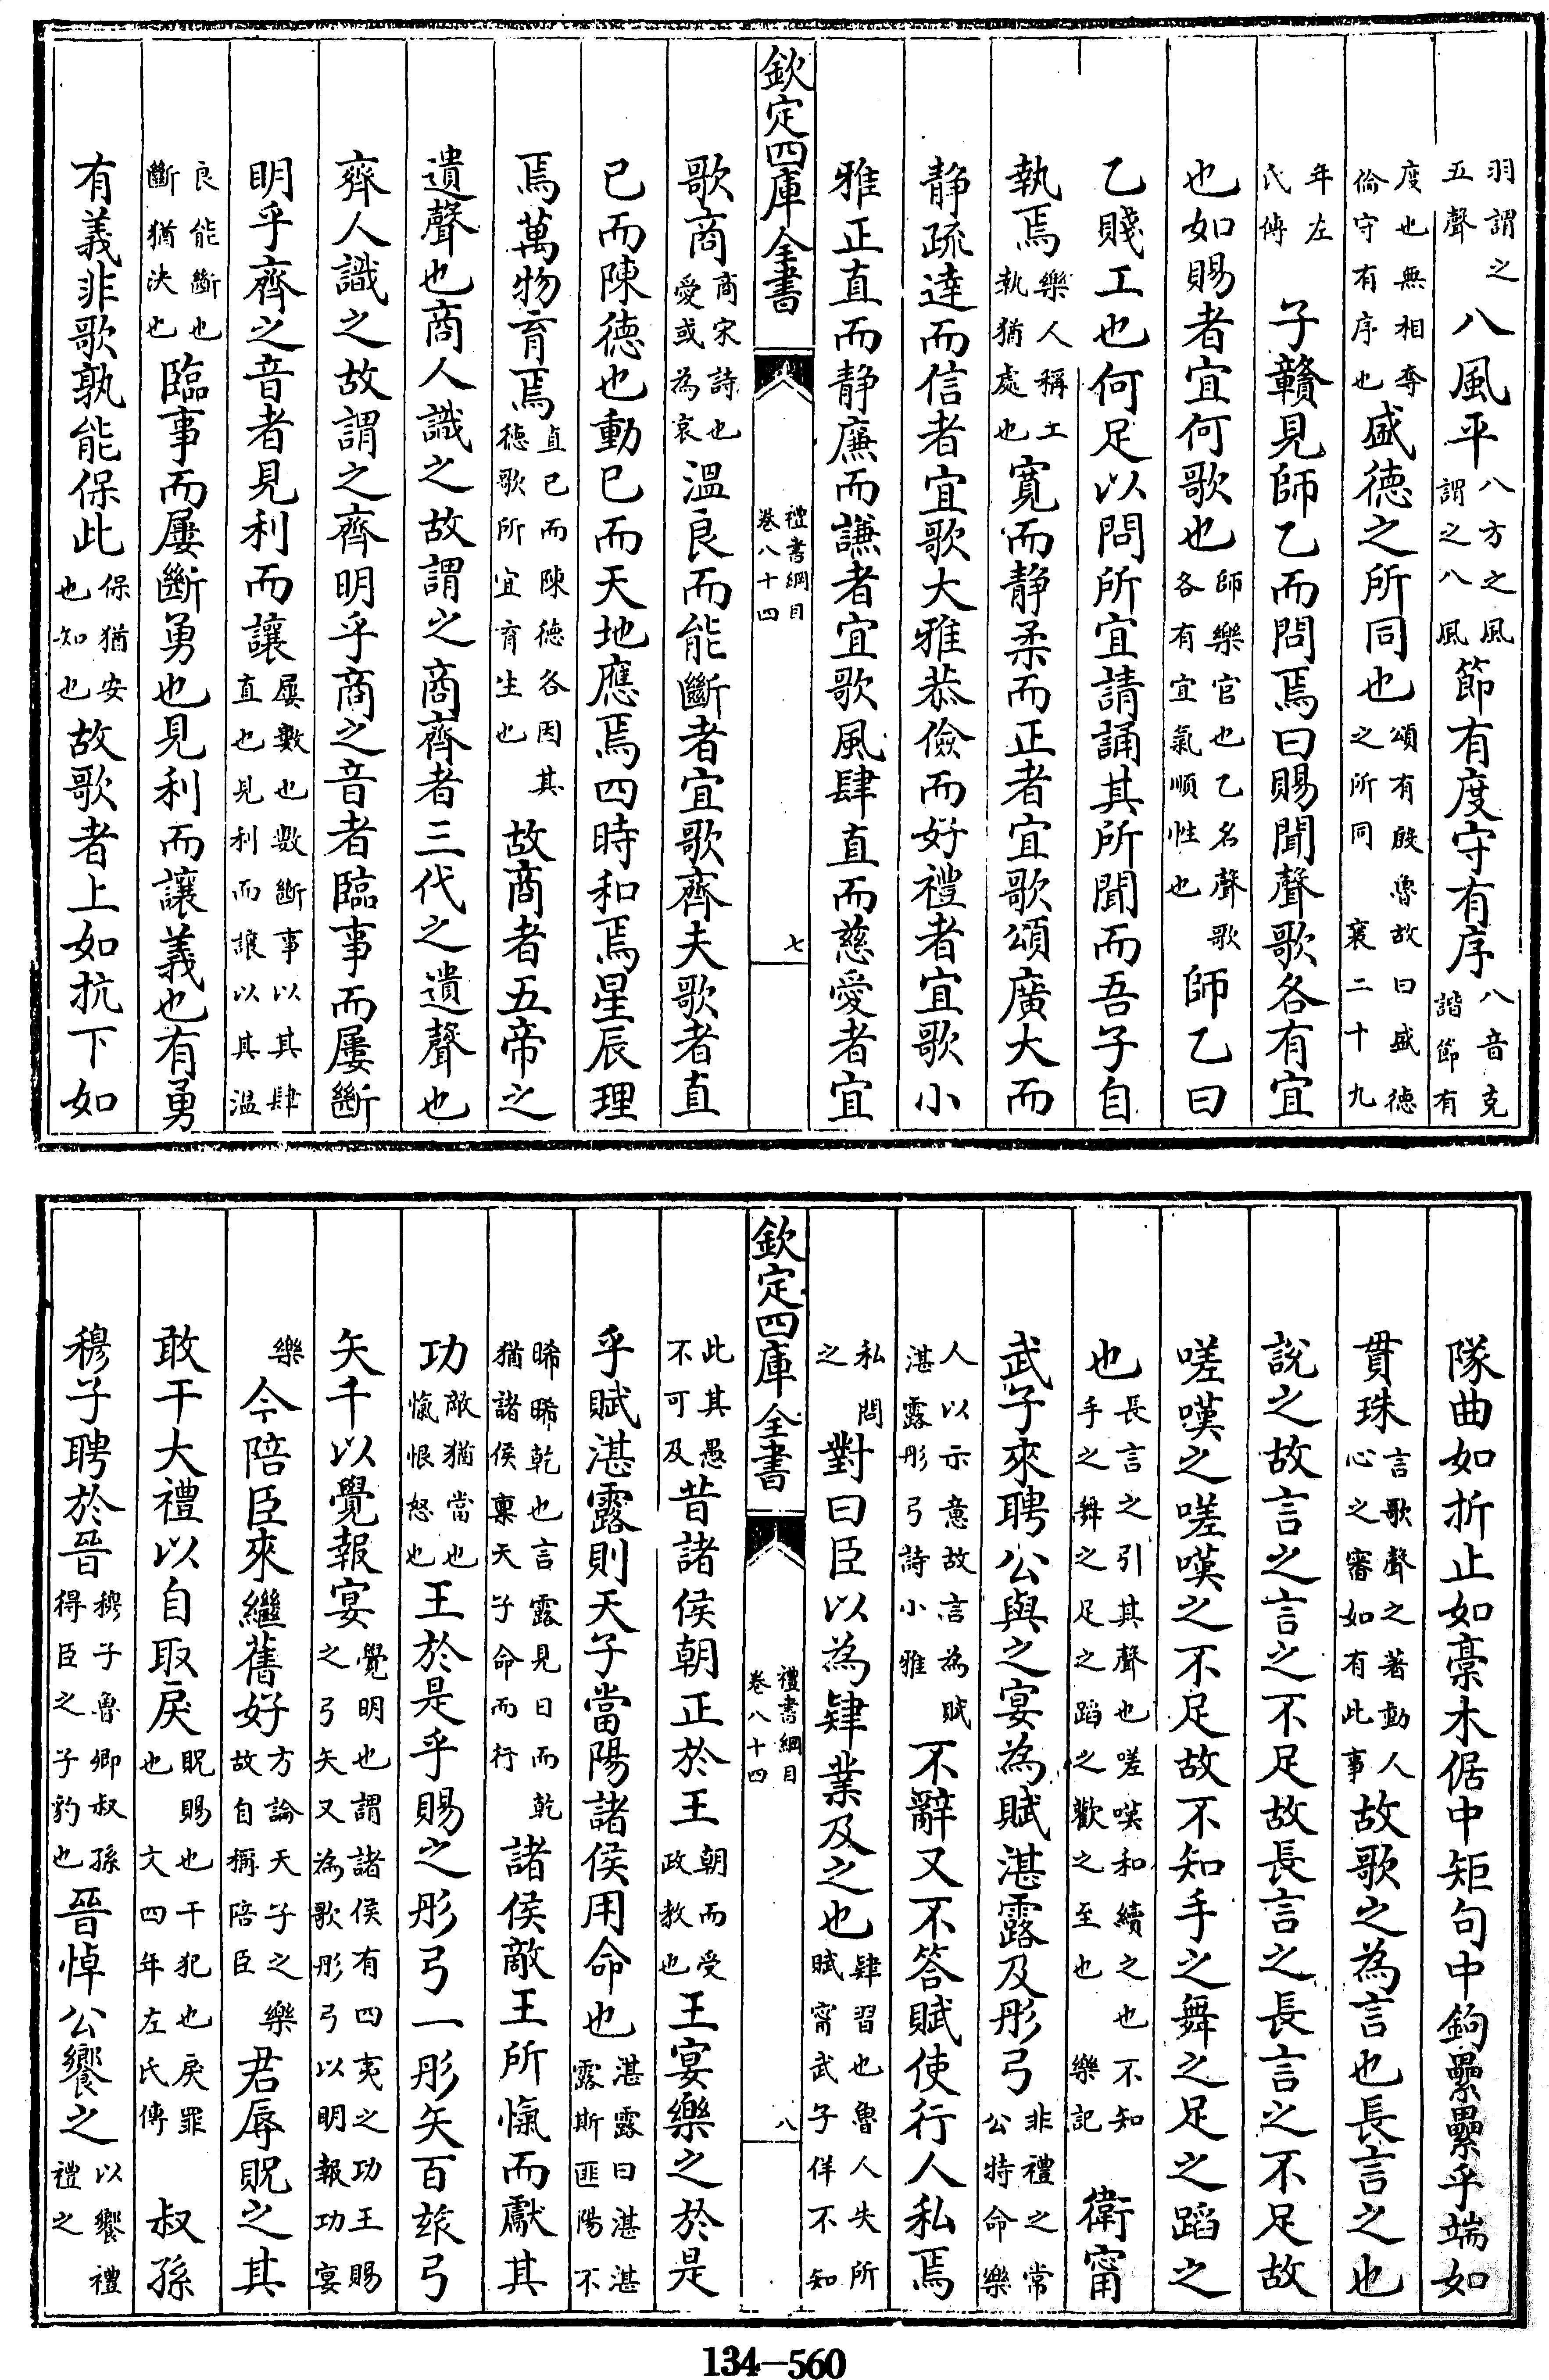 羽謂之五聲八風平八方之風謂之八風節有度守有序八音克諧節有
度也無相奪倫守有序也盛德之所同也頌有殷魯故曰盛德之所同襄二十九
年左氏傳子贛見師乙而問焉曰賜聞聲歌各有宜
也如賜者宜何歌也師樂官也乙名聲歌各有宜氣順性也師乙曰
乙賤工也何足以問所宜請誦其所聞而吾子自
執焉樂人稱工執猶處也寬而静柔而正者宜歌頌廣大而
静疏達而信者宜歌大雅恭儉而好禮者宜歌小
雅正直而静廉而謙者宜歌風肆直而慈愛者宜
欽定四庫全書
禮書綱目
卷八十四
七
歌商商宋詩也愛或為哀溫良而能斷者宜歌齊夫歌者直
已而陳德也動已而天地應焉四時和焉星辰理
焉萬物育焉直已而陳德各因其德歌所宜育生也故商者五帝之
遺聲也商人識之故謂之商齊者三代之遺聲也
齊人識之故謂之齊明乎商之音者臨事而屢斷
明乎齊之音者見利而讓屢數也數斷事以其肆直也見利而讓以其温
良能斷也斷猶决也臨事而屢斷勇也見利而讓義也有勇
有義非歌孰能保此保猶安也知也故歌者上如抗下如
隊曲如折止如槀木倨中矩句中鉤纍纍乎端如
貫珠言歌聲之著動人心之審如有此事故歌之為言也長言之也
說之故言之言之不足故長言之長言之不足故
嗟嘆之嗟嘆之不足故不知手之舞之足之蹈之
也長言之引其聲也嗟嘆和續之也不知手之舞之足之蹈之歡之至也樂記衛甯
武子來聘公與之宴為賦湛露及彤弓非禮之常公特命樂
人以示意故言為賦湛露彤弓詩小雅不辭又不答賦使行人私焉
私問之對曰臣以為肄業及之也肄習也魯人失所賦甯武子佯不知
欽定四庫全書
禮書綱目
卷八十四
八
此其愚不可及昔諸侯朝正於王朝而受政教也王宴樂之於是
乎賦湛露則天子當陽諸侯用命也湛露曰湛湛露斯匪陽不
晞晞乾也言露見日而乾猶諸侯禀天子命而行諸侯敵王所愾而獻其
功敵猶當也愾恨怒也王於是乎賜之彤弓一彤矢百玈弓
矢千以覺報宴覺明也謂諸侯有四夷之功王賜之弓矢又為歌彤弓以明報功宴
樂今陪臣來繼舊好方論天子之樂故自稱陪臣君辱貺之其
敢干大禮以自取戾貺賜也干犯也戾罪也文四年左氏傳叔孫
穆子聘於晉穆子魯卿叔孫得臣之子豹也晉悼公饗之以饗禮禮之
134—560